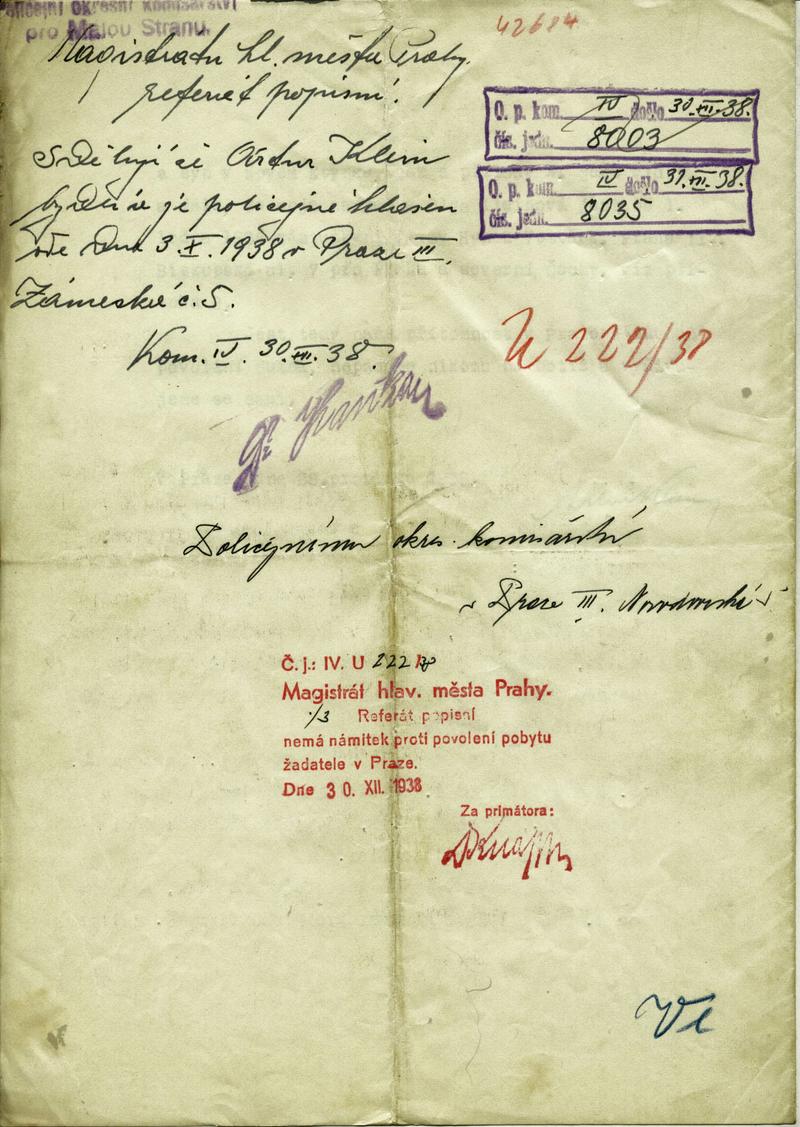 Policejní okresní komisařství
pro Malou Stranu.
42684
Magistrátu hl. města Prahy
referát popisní.
O. p. kom. IV došlo 30.XII.38.
čís. jedn. 8003
O. p. kom. IV došlo 31.XII.38.
čís. jedn. 8035
Sděluji že Artur Klein
bydlí a je policejně hlášen
ode dne 3.X.1938 v Praze III.
Zámecká č. 5.
Kom. IV. 30.XII.38.
U 222/38
Policejnímu okres. komisařství
v Praze III.
Č. j.: IV. U 222 38
Magistrát hlav. města Prahy.
/3 Referát popisní
nemá námitek proti povolení pobytu
žadatele v Praze.
Dne 30. XII. 1938
Za primátora: